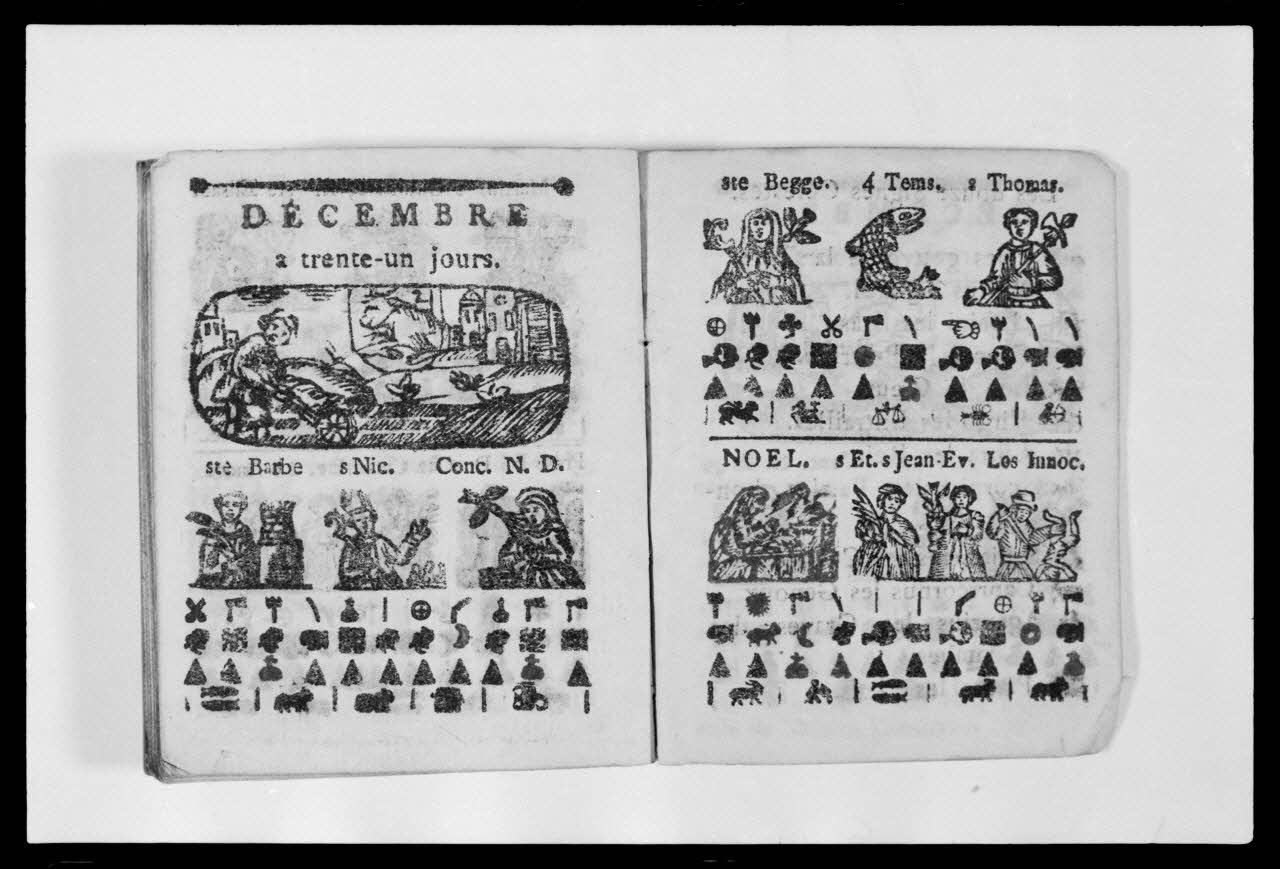 DÉCEMBRE
a trente-un jours.
ste Barbe s Nic. Conc. N. D.
ste Begge. 4 Tems. s Thomas.
NOEL. s Et. s Jean-Ev. Les Innoc.